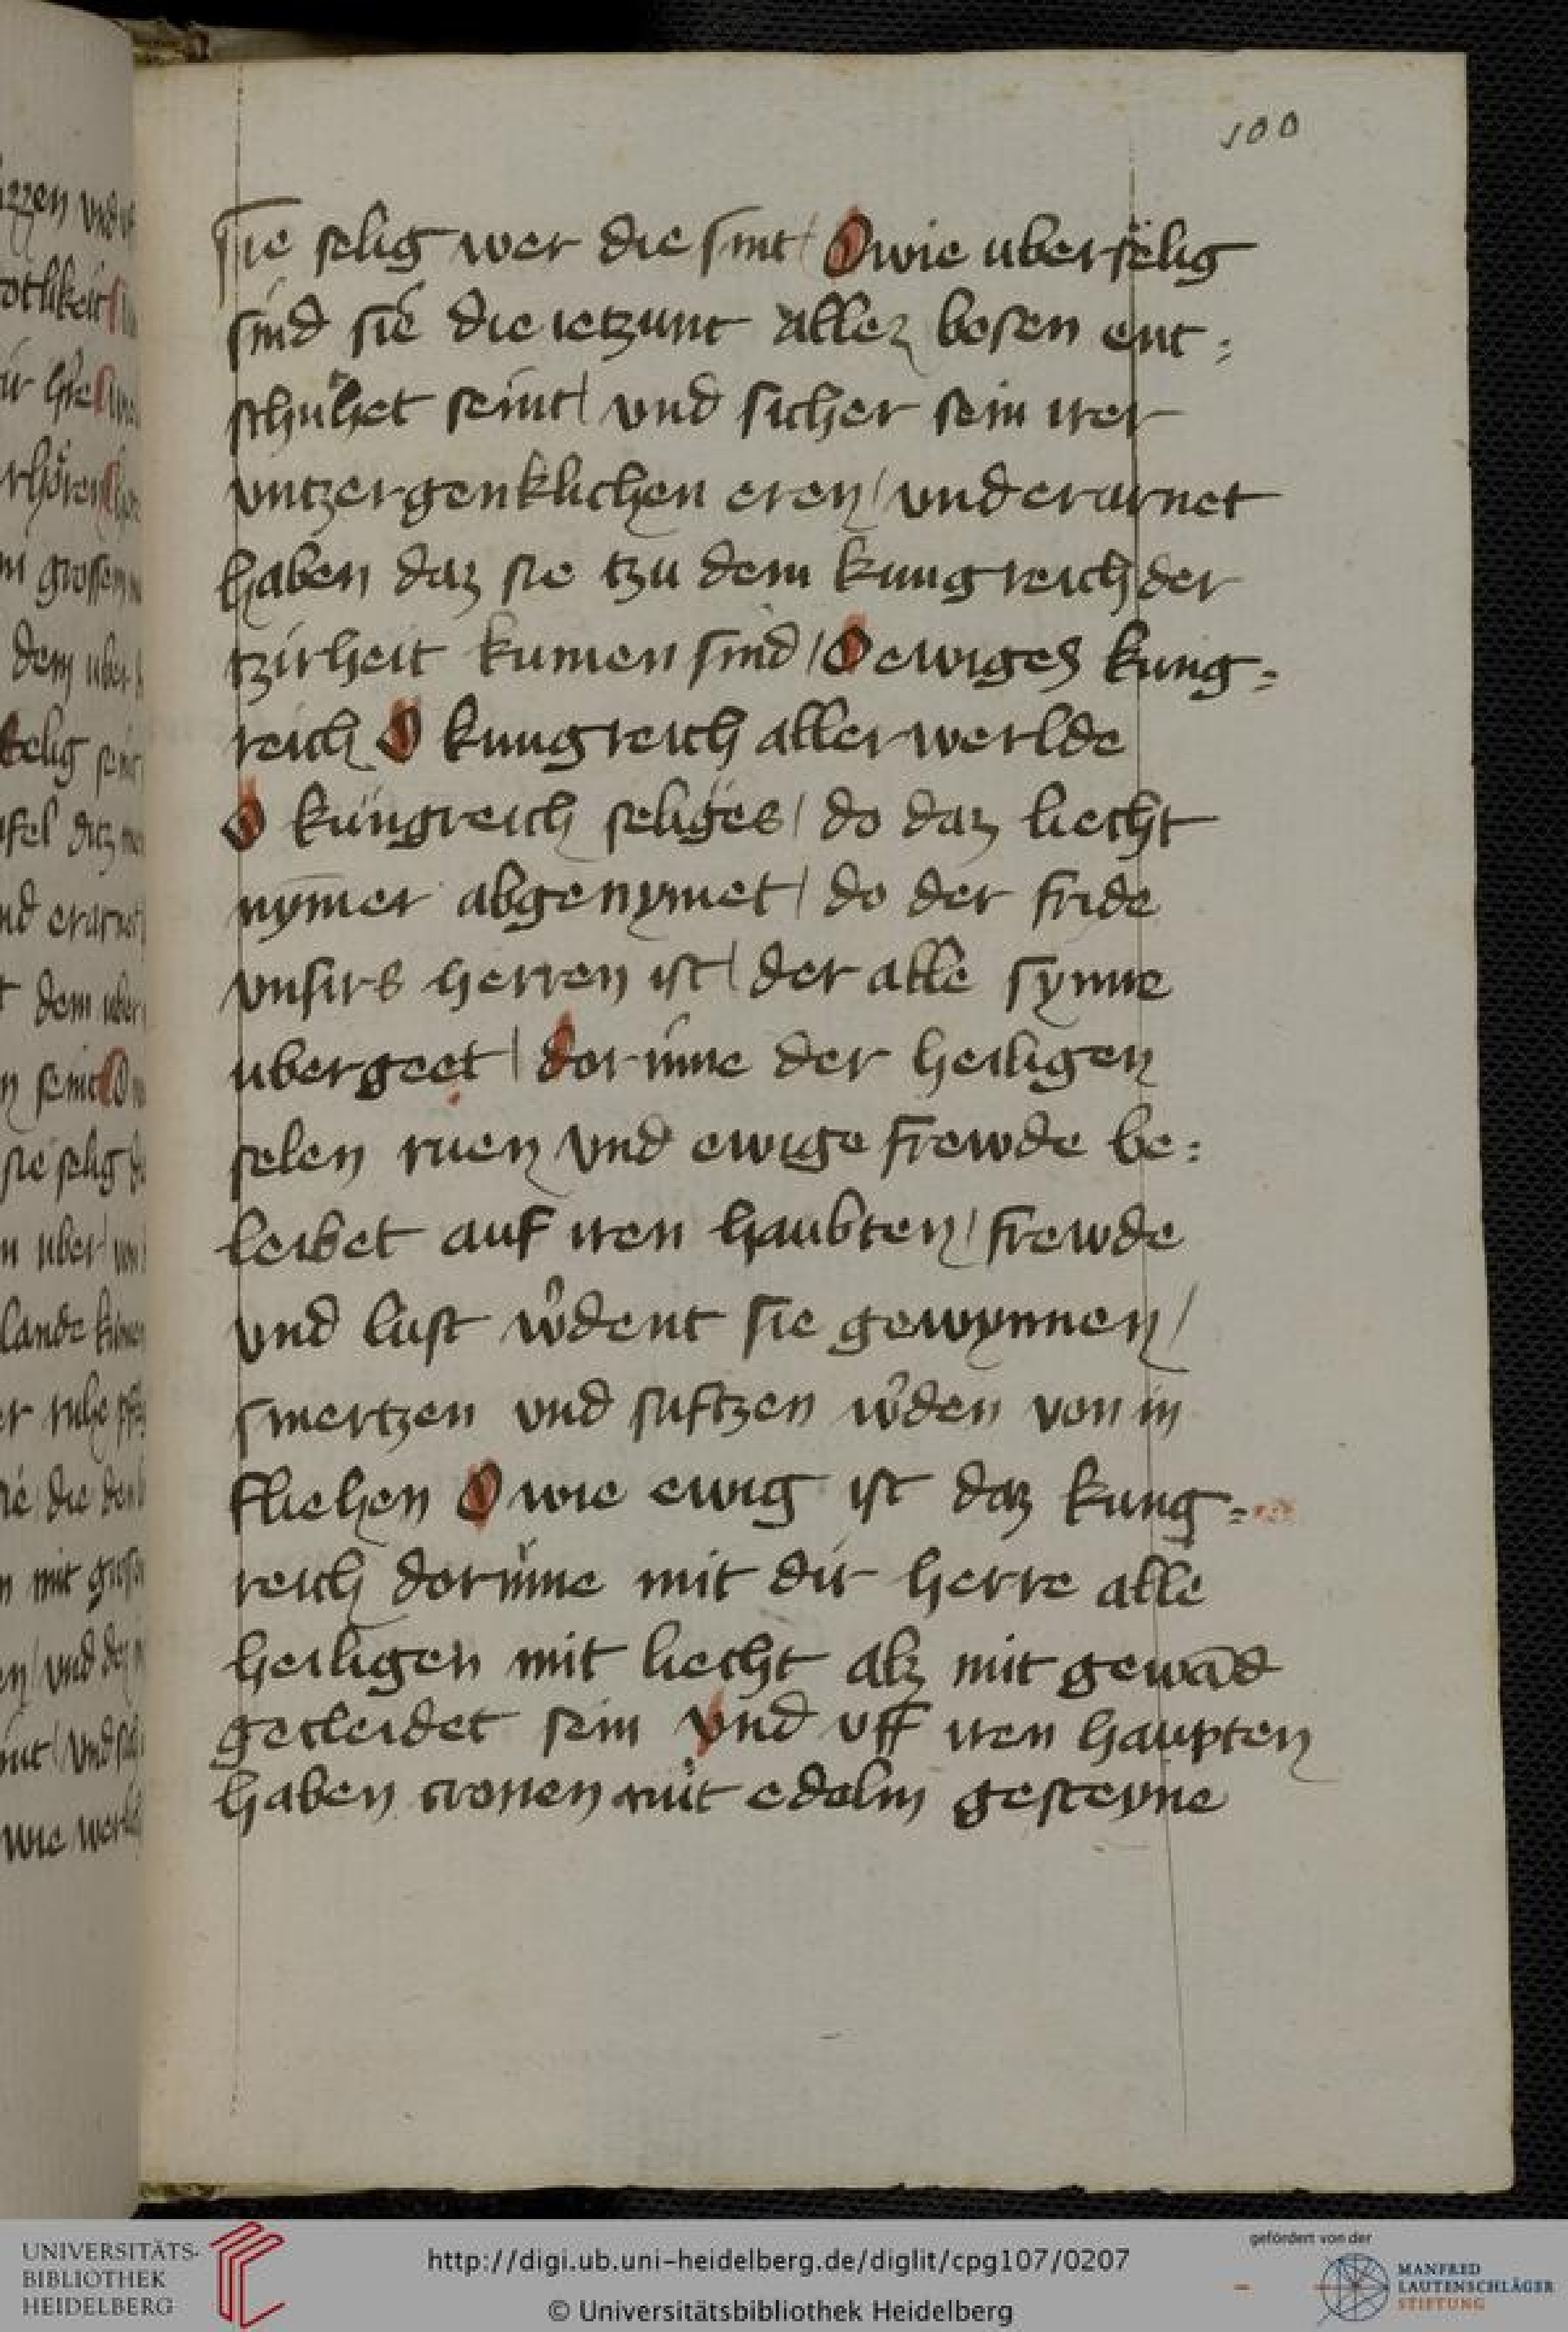 100
sie selig wer die sint / O wie uberselig
sind sie die ietzunt allez bosen ent=
schuhet seint / und sicher sein irer
untzergenklichen eren / und erarnet
haben daz sie tzu dem kungreich der
tzirheit kumen sind / O ewiges kung=
reich O kungreich aller werlde
O küngreich seliges / do daz liecht
nȳmer abgenymet / do der fride
unsirs herren ist / der alle synne
ubergeet / dorinne der heiligen
selen ruen und ewige frewde be=
leibet auf iren haubten / frewde
und lust wͦdent sie gewynnen /
smertzen und suftzen wͦden von in
fliehen O wie ewig ist daz kung=
reich dorinne mit dir herre alle
heiligen mit liecht alz mit gewād
gecleidet sein und uff iren haupten
haben cronen mit edelm gesteyne
UNIVERSITÄTS-
BIBLIOTHEK
HEIDELBERG
http://digi.ub.uni-heidelberg.de/diglit/cpg107/0207
© Universitätsbibliothek Heidelberg
gefördert von der
MANFRED
LAUTENSCHLÄGER
STIFTUNG